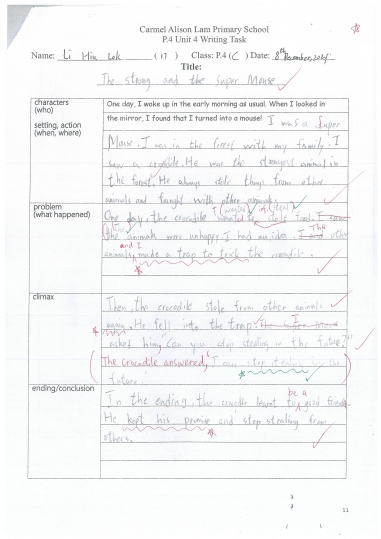 Carmel Alison Lam Primary School
P.4 Unit 4 Writing Task
Name: Li Hin Lok (17) Class: P.4 (C) Date: 8th November, 2021
Title:
The strong and the Super Mouse
characters
(who)
setting, action
(when, where)
One day, I woke up in the early morning as usual. When I looked in
the mirror, I found that I turned into a mouse! I was a Super
Mouse. I was in the forest with my family. I
saw a crocodile. He was the strongest animal in
the forest. He always stole things from other
animals and fought with other animals.
problem
(what happened)
One day, the crocodile wanted to stole food.
The animals were unhappy. I had an idea. I and The other
animals and I made a trap to trick the crocodile.
climax
Then, the crocodile stole from other animals
again. He fell into the trap. I
asked him, "Can you stop stealing in the future?"
The crocodile answered, "I can stop stealing in the
future."
ending/conclusion
In the ending, the crocodile learnt to be a good friend.
He kept his promise and stop stealing from
others.
11